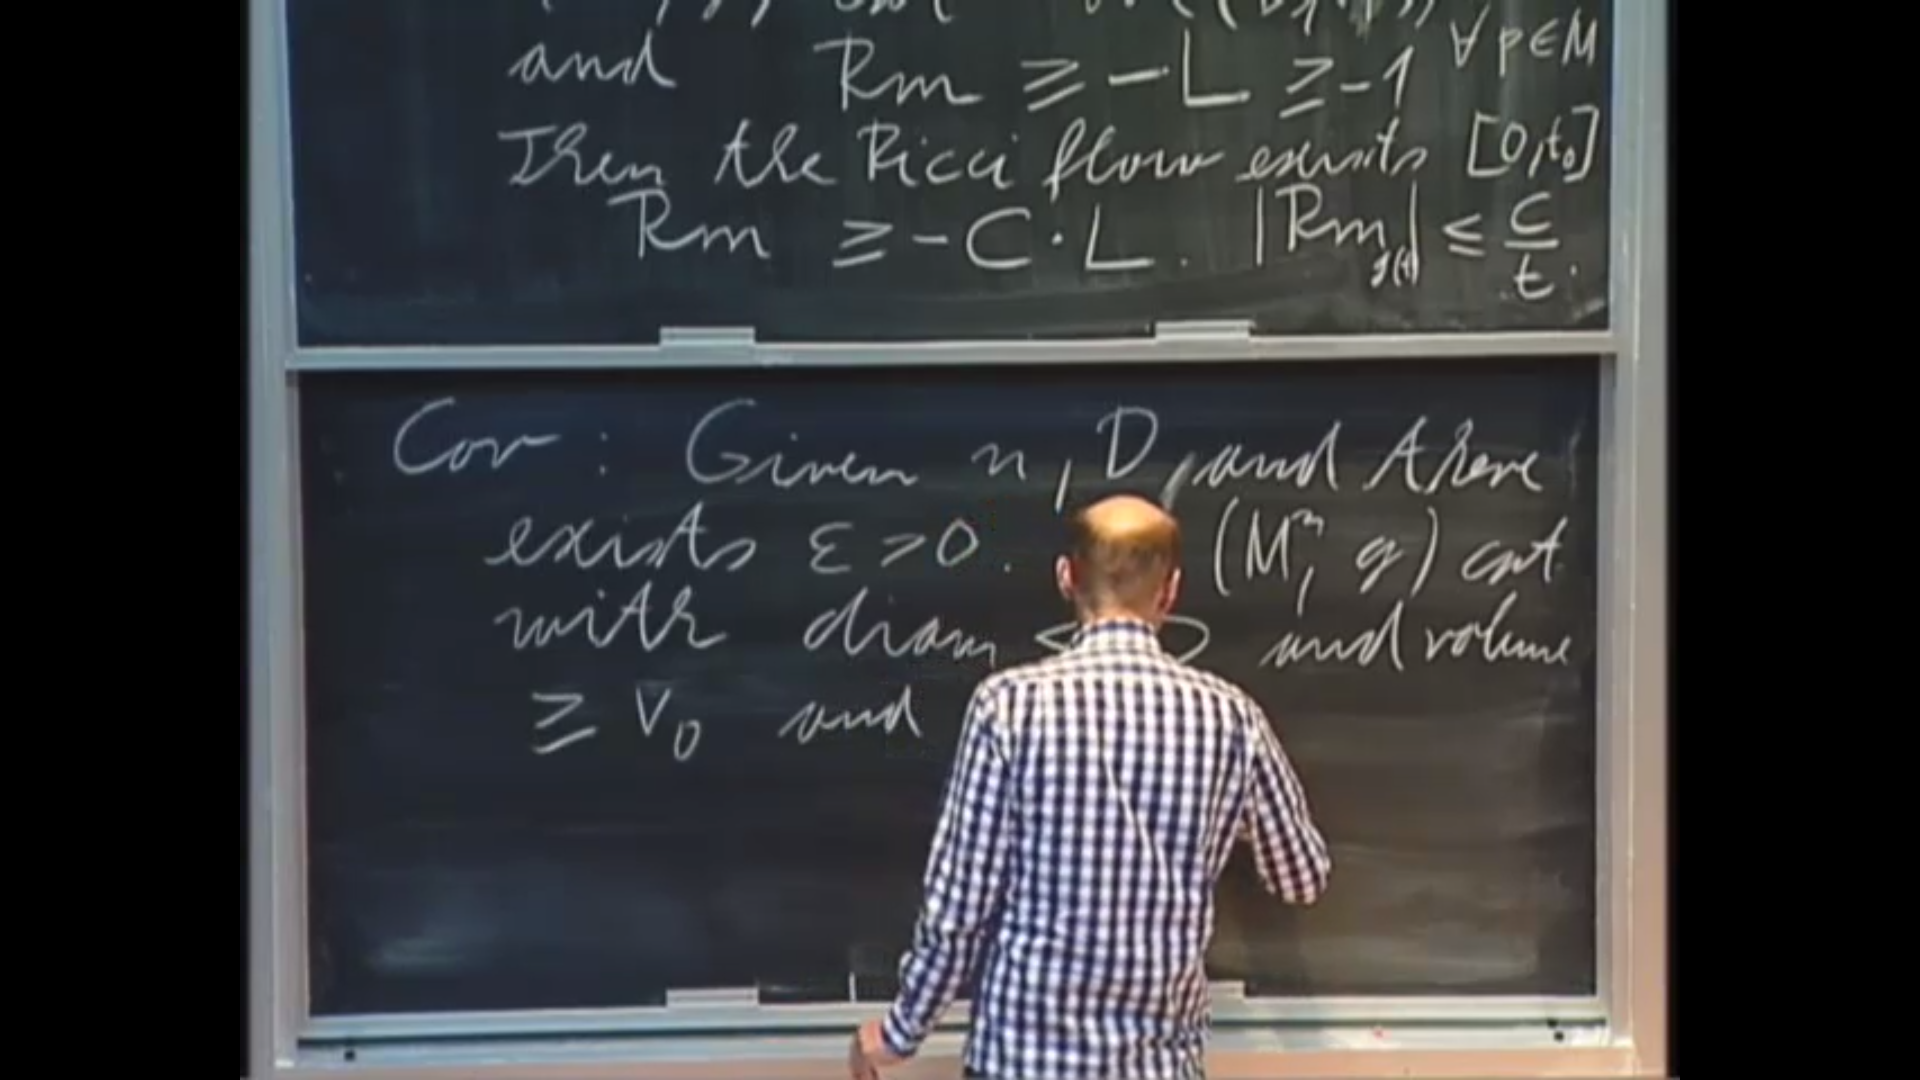 and Rm ≥ -L ≥ -1 ∀ p∈M
Then the Ricci flow exists [0,t₀]
Rm ≥ -C · L . |Rm_g(t)| ≤ C/t .
Cor : Given n, D, and there
exists ε>0 . (Mⁿ, g) cpt
with diam ≤ D and volume
≥ v₀ and